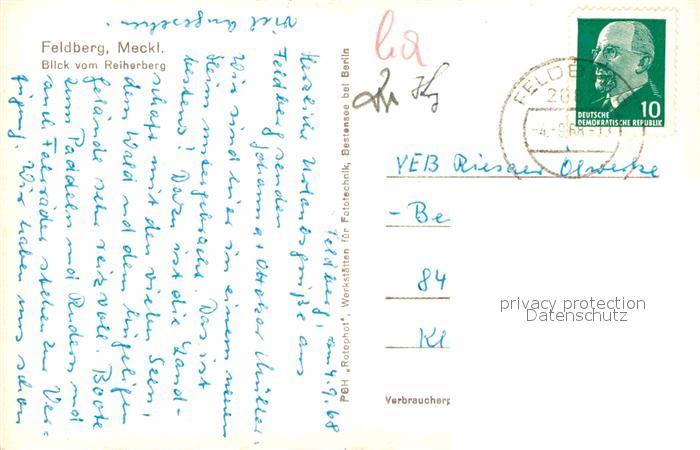 Feldberg, Meckl.
Blick vom Reiherberg
Feldberg, am 4.9.68
Herzliche Urlaubsgrüße aus
Feldberg senden
Johanna + Ottokar Müller.
Wir sind hier in einem neuen
Heim untergebracht. Das ist
bestens! Dazu ist die Land-
schaft mit den vielen Seen,
dem Wald und dem hügeligen
Gelände sehr reizvoll. Boote
zum Paddeln und Rudern und
auch Fahrräder stehen zur Ver-
fügung. Wir haben uns schon
viel angesehen.
PGH „Rotophot", Werkstätten für Fototechnik, Bestensee bei Berlin
FELDB
-4.-9.68-13
10
DEUTSCHE
DEMOKRATISCHE REPUBLIK
VEB Riesaer Ölwerke
- Be
84
Kl
privacy protection
Datenschutz
Verbraucherp